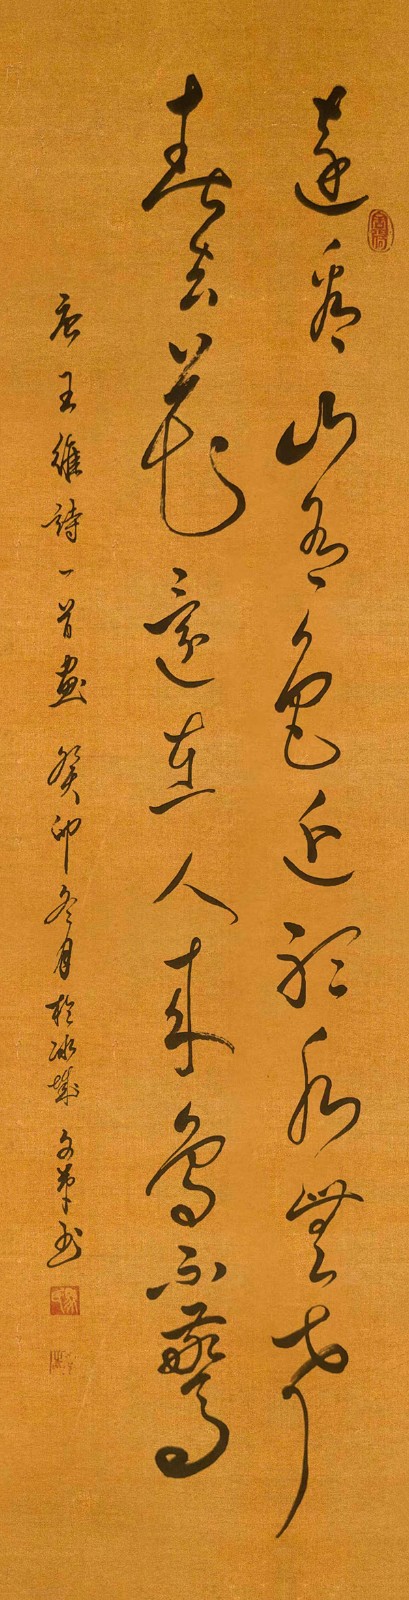 遠看山有色近聽水無聲
春去花還在人來鳥不驚
唐王維詩一首畫 癸卯冬月於冰城 文華书